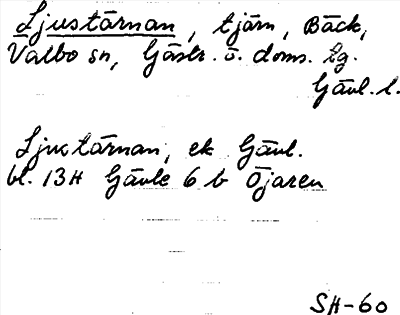 Ljustärnan, tjärn, Bäck,
Valbo sn, Gästr. ö. doms. tg.
Gävl. l.
Ljustärnan, ek Gävl.
bl. 13H Gävle 6 b Öjaren
SH-60